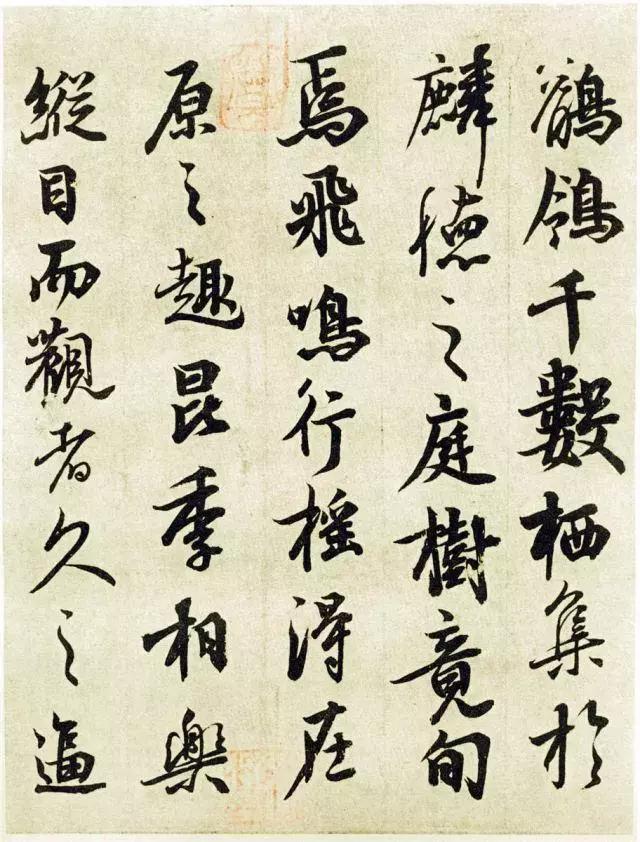 鶺鴒千數栖集於
麟德之庭樹竟旬
焉飛鳴行摇得在
原之趣昆季相樂
縱目而觀者久之逼